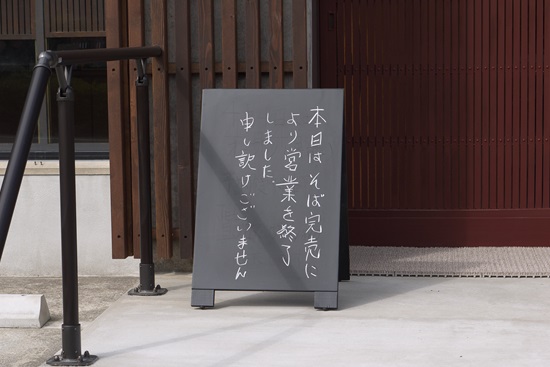 本日はそば完売に
より営業を終了
しました。
申し訳けございません